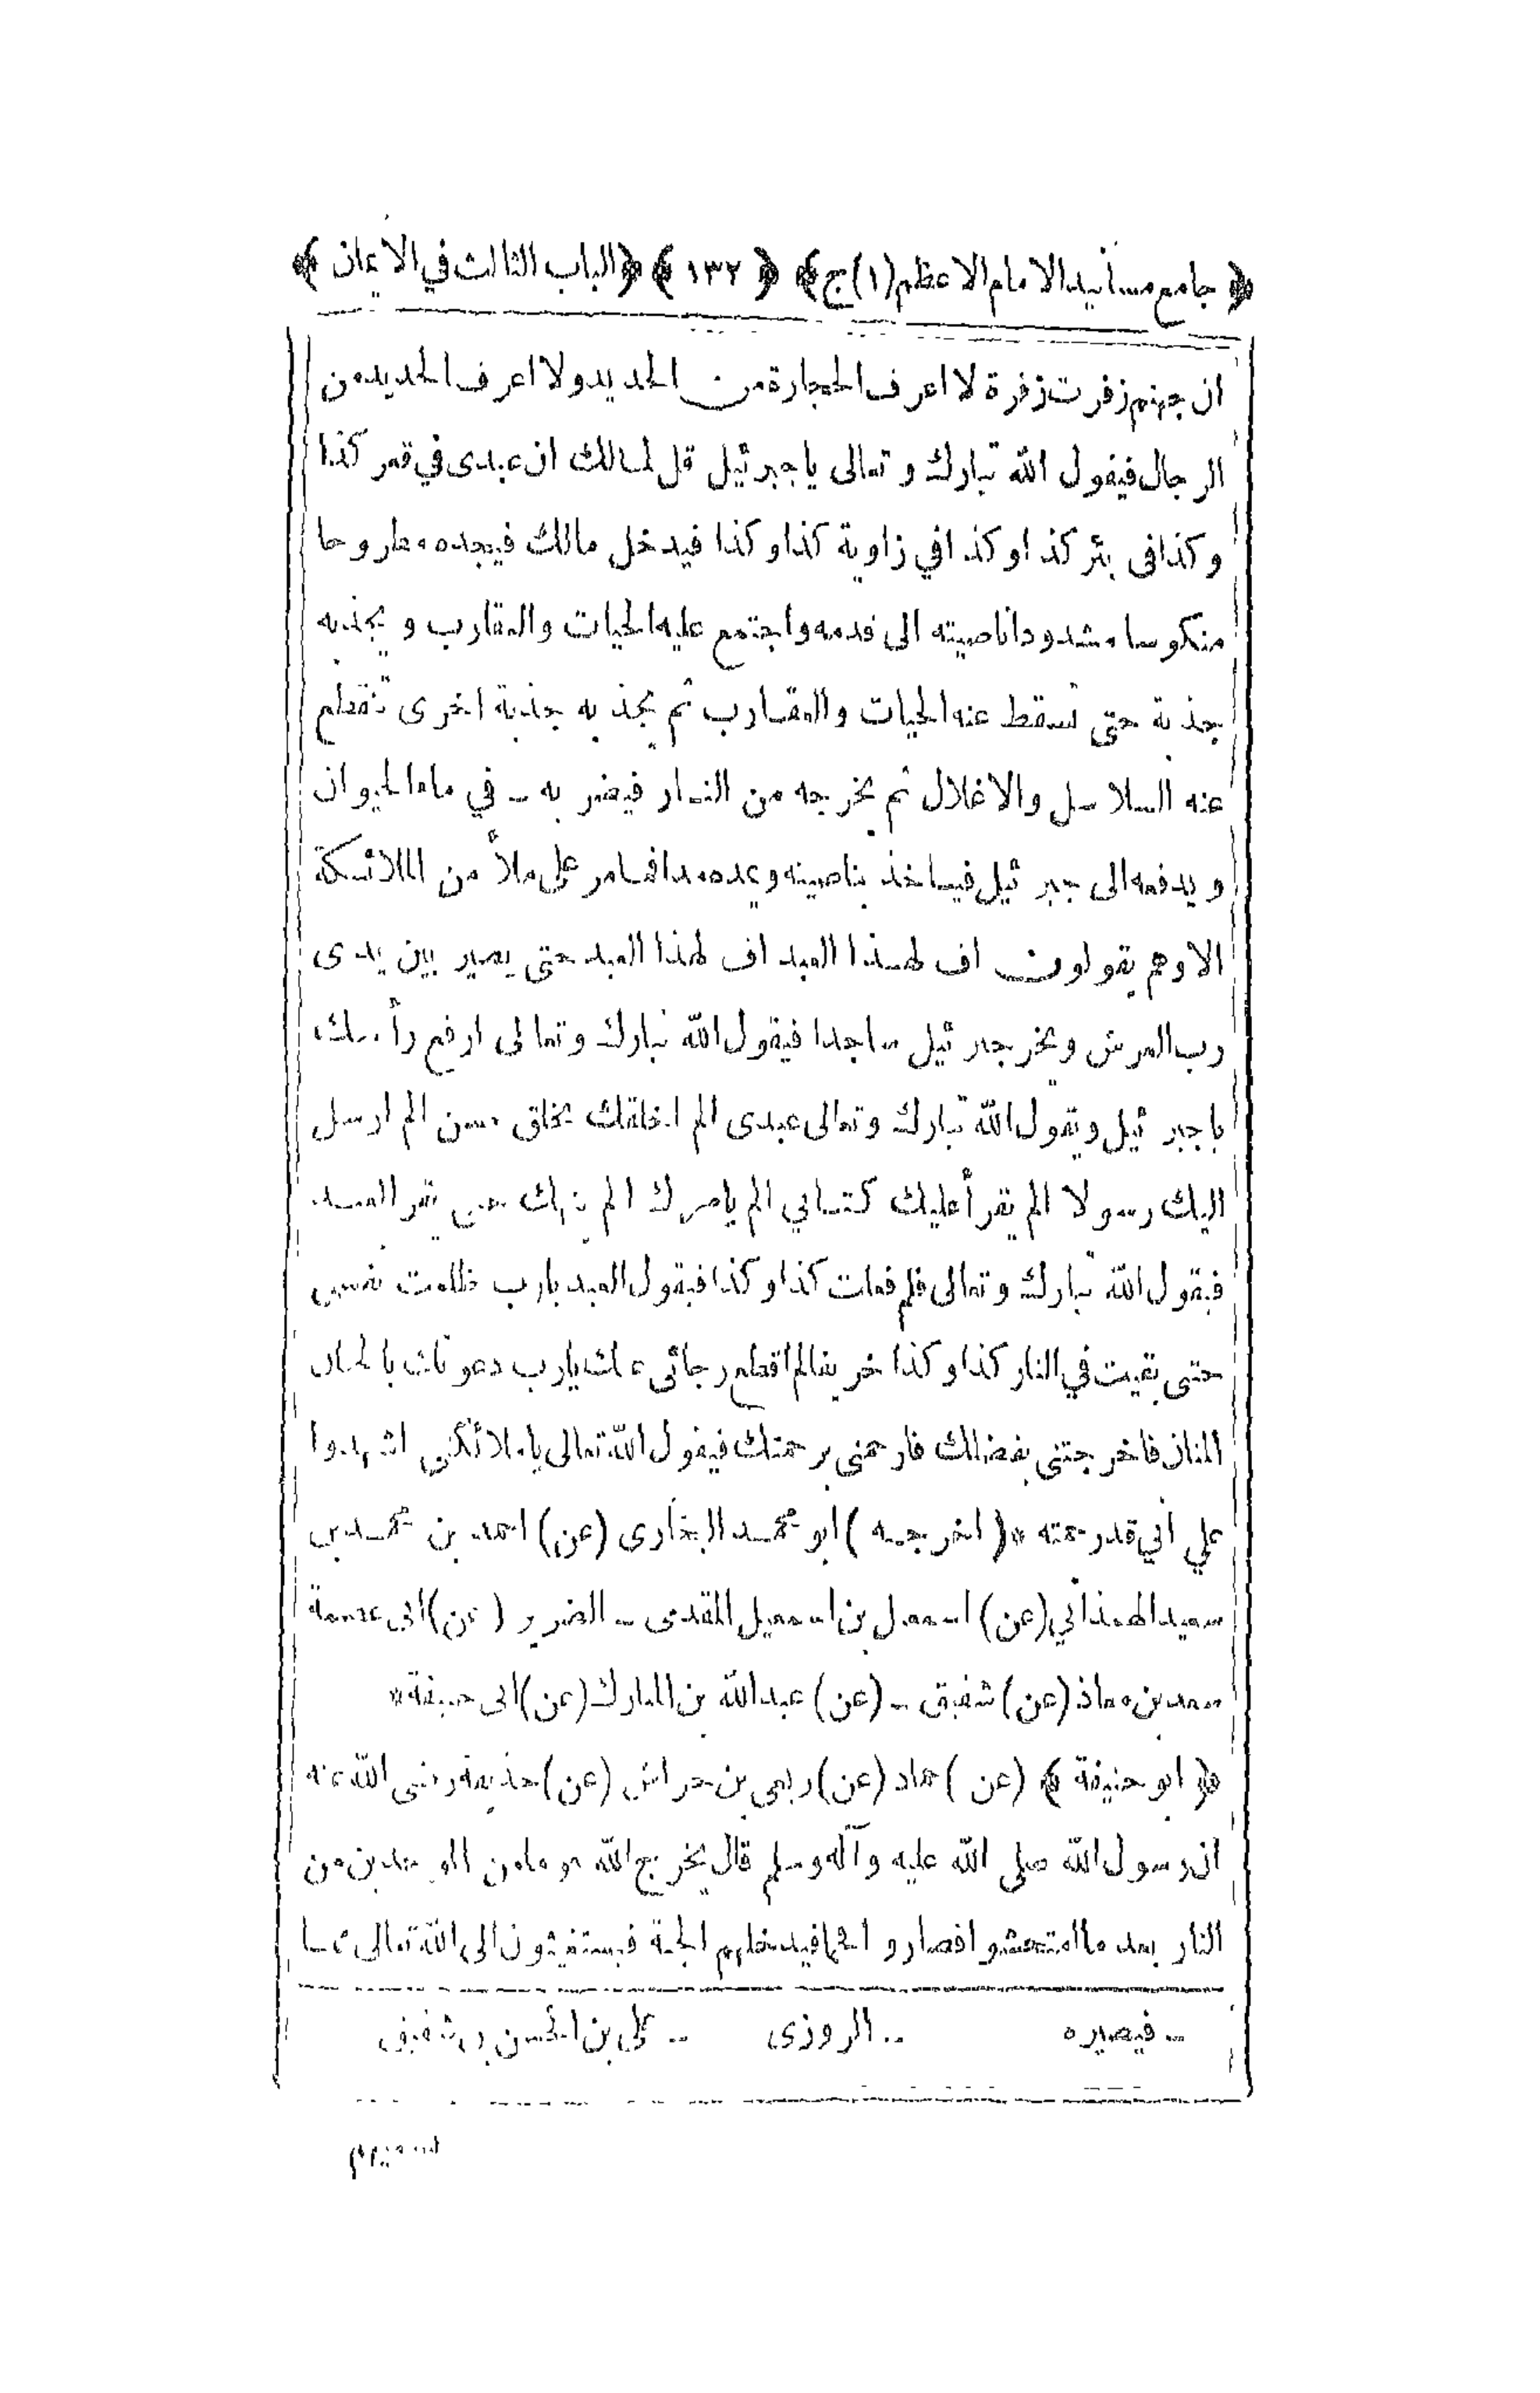 ﴿ جامع مسانيد الامام الاعظم (١) ج ﴾ ﴿ ١٣٢ ﴾ ﴿ الباب الثالث في الايمان ﴾
ان جهنم زفرت زفرة لا اعرف الحجارة من الحديد ولا اعرف الحديد من
الرجال فيقول الله تبارك وتعالى يا جبرئيل قل لمالك ان عبدى في قعر كذا
وكذا فى بئر كذا وكذا في زاوية كذا وكذا فيدخل مالك فيجده مطروحا
منكوسا مشدودا ناصيته الى قدمه واجتمع عليه الحيات والعقارب و يجذبه
جذبة حتى تسقط عنه الحيات والعقارب ثم يجذبه جذبة اخرى تنقطع
عنه السلاسل والاغلال ثم يخرجه من النار فيضربه ــ في ماء الحيوان
و يدفعه الى جبرئيل فياخذ بناصيته ويمده مدا فما مر على ملأ من الملائكة
الا وهم يقولون اف لهذا العبد اف لهذا العبد حتى يصير بين يدى
رب العرش ويخر جبرئيل ساجدا فيقول الله تبارك وتعالى ارفع رأسك
يا جبرئيل ويقول الله تبارك وتعالى عبدى الم اخلقك بخلق حسن الم ارسل
اليك رسولا الم يقرأ عليك كتابي الم يامرك الم ينهك حتى يقر العبد
فيقول الله تبارك وتعالى فلم فعلت كذا وكذا فيقول العبد يارب ظلمت نفسى
حتى بقيت في النار كذا وكذا خريفا لم اقطع رجائى عنك يارب دعوتك بالحنان
المنان فاخرجتنى بفضلك فارحمنى برحمتك فيقول الله تعالى يا ملائكتى اشهدوا
على انى قد رحمته * ( اخرجه ) ابو محمد البخارى (عن) احمد بن محمد بن
سعيد الهمذاني (عن) اسمعيل بن اسمعيل المقدمى ــ الضرير (عن) ابى عصمة
سعد بن معاذ (عن) شقيق ــ (عن) عبدالله بن المبارك (عن) ابى حنيفة *
﴿ ابو حنيفة ﴾ (عن) حماد (عن) ربعى بن حراش (عن) حذيفة رضى الله عنه
ان رسول الله صلى الله عليه وآله وسلم قال يخرج الله قوما من الموحدين من
النار بعد ما امتحشوا فصاروا فحما فيدخلهم الجنة فيستغيثون الى الله تعالى مما
ــ فيصيره ــ المروزى ــ على بن الحسن بن شقيق